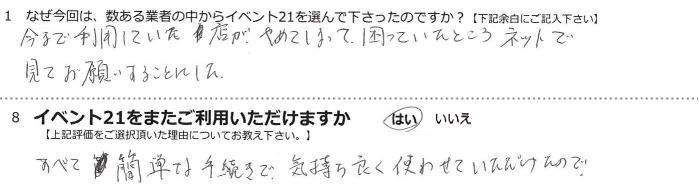 1 なぜ今回は、数ある業者の中からイベント21を選んで下さったのですか？【下記余白にご記入下さい】
今まで利用していた店がやめてしまって、困っていたところネットで
見てお願いすることにした.
8 イベント21をまたご利用いただけますか はい いいえ
【上記評価をご選択頂いた理由についてお教え下さい。】
すべて簡単な手続きで、気持ち良く使わせていただけたので.